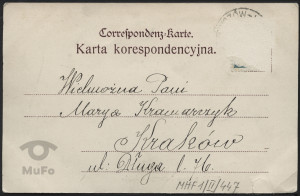 Correspondenz-Karte.
Karta korespondencyjna.
Wielmożna Pani
Marya Kramarczyk
Kraków
ul: Długa l. 76.
MHF 1/II/447
MuFo